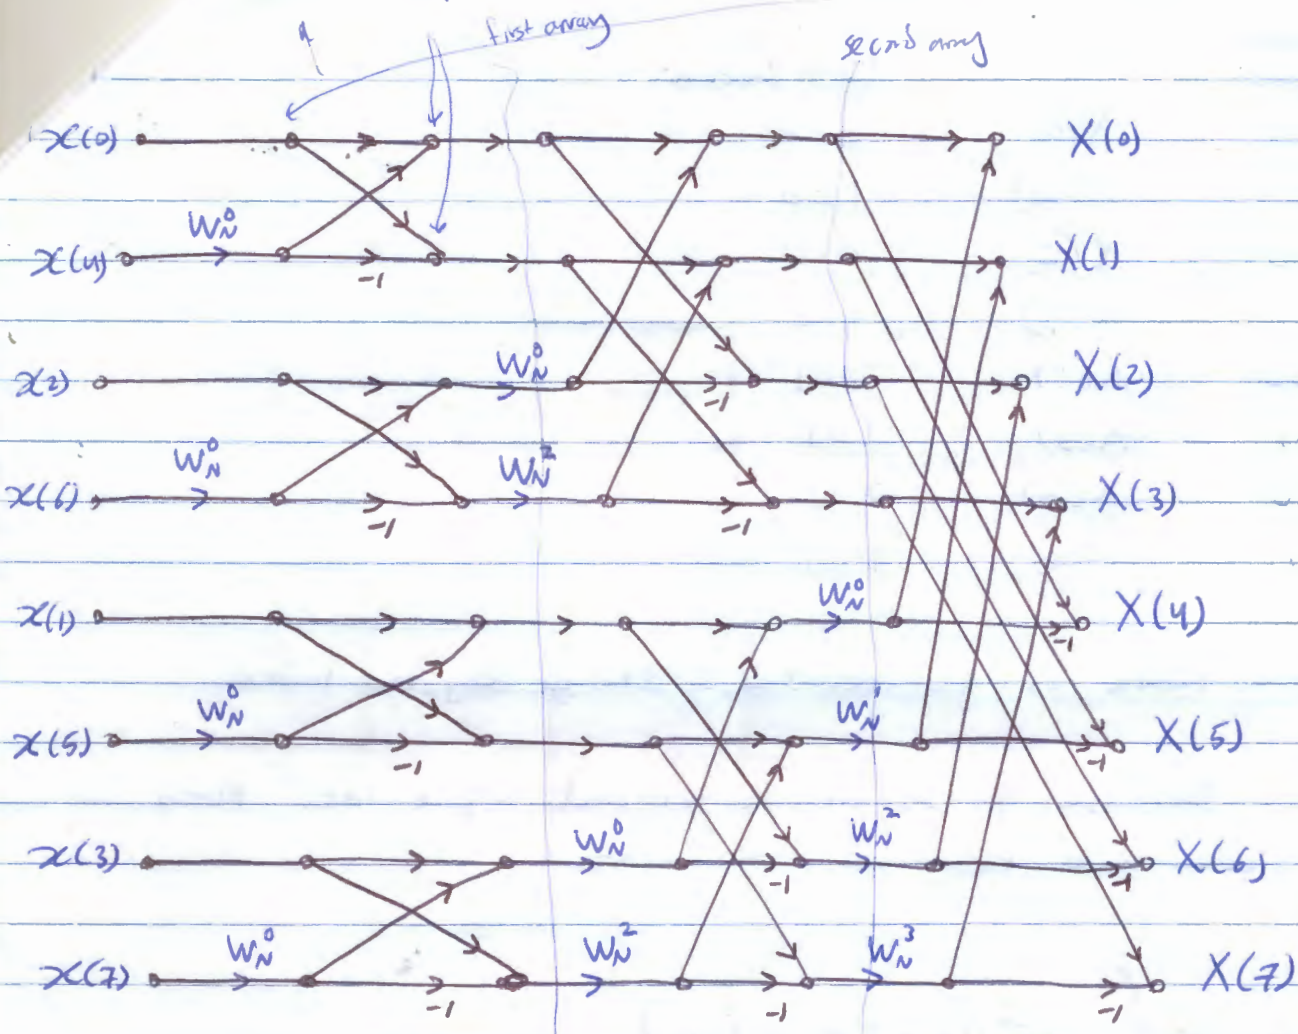 first array
second array
x(0) X(0)
W_N^0
x(4) -1 X(1)
W_N^0
x2) -1 X(2)
W_N^0 W_N^2
x(6) -1 -1 X(3)
W_N^0
x(1) -1 X(4)
W_N^0 W_N^1
x(5) -1 -1 X(5)
W_N^0 W_N^2
x(3) -1 -1 X(6)
W_N^0 W_N^2 W_N^3
x(7) -1 -1 -1 X(7)